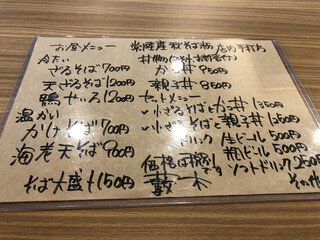 お昼メニュー
冷たい
ざるそば 700円
天ざるそば 1200円
鴨せいろ 1200円
温かい
かけそば 700円
海老天そば 900円
そば大盛 + 150円
常陸産 秋そば粉 店内手打ち
カツ丼 950円
親子丼 850円
セットメニュー
いざるそばとカツ丼 1350円
いざるそばと親子丼 1250円
ドリンク 生ビール 500円
瓶ビール 500円
ソフトドリンク 250円
価格は税別です
その他